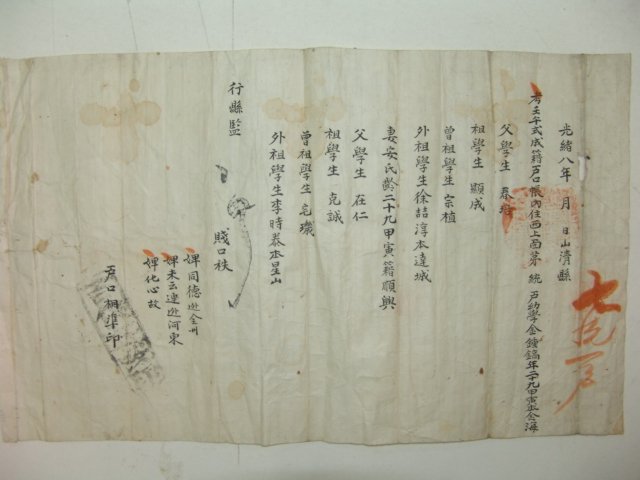 光緒八年 月 日山清縣
考壬午式成籍戶口帳內住西上面苐 統 戶幼學金 年二十九甲寅本金海
父學生 春
祖學生 顯成
曾祖學生 宗植
外祖學生徐喆淳本達城
妻安氏齡二十九甲寅籍順興
父學生 在仁
祖學生 克誠
曾祖學生 宅璣
外祖學生李時泰本星山
行縣監
賤口秩
婢同德逃全州
婢末云連逃河東
婢化心故
戶口相準印
七統一戶